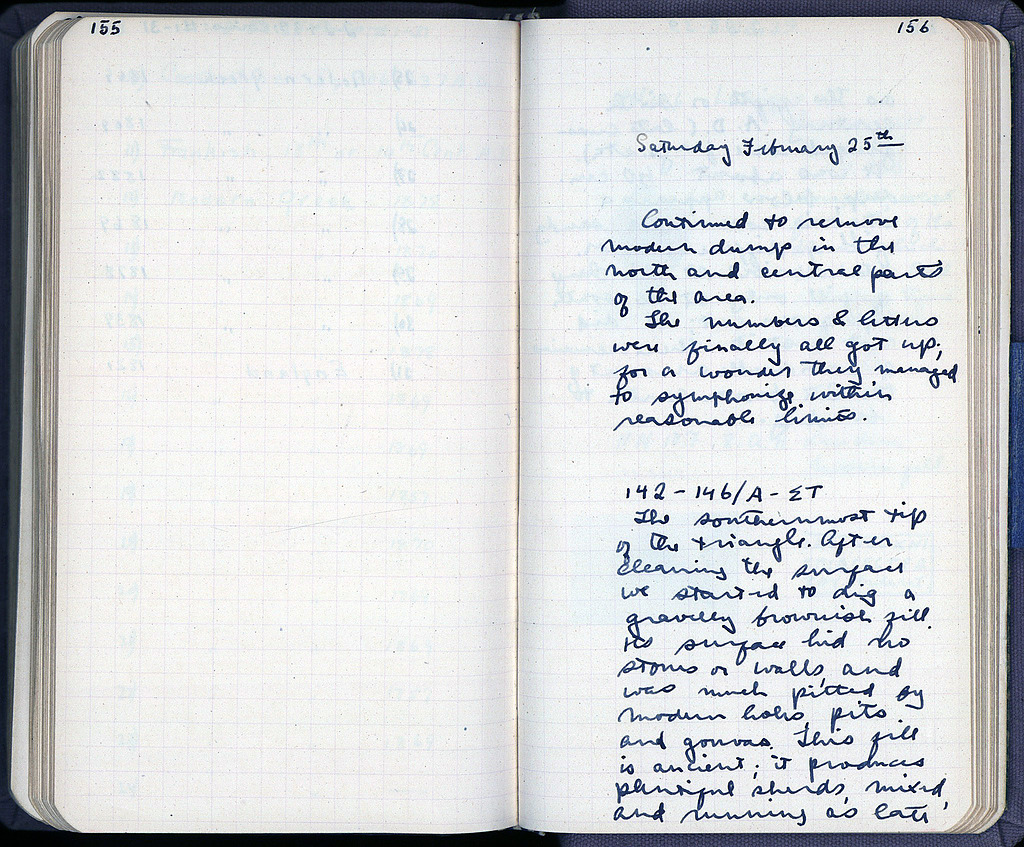 155
156
Saturday February 25th
Continued to remove
modern dump in the
north and central parts
of the area.
The numbers & letters
were finally all got up;
for a wonder they managed
to symphonize within
reasonable limits.
142-146/A-ΣΤ
The southernmost tip
of the triangle. After
cleaning the surface
we started to dig a
gravelly brownish fill.
Its surface hid no
stones or walls, and
was much pitted by
modern holes, pits
and gouvas. This fill
is ancient; it produces
plentiful sherds, mixed,
and running as late